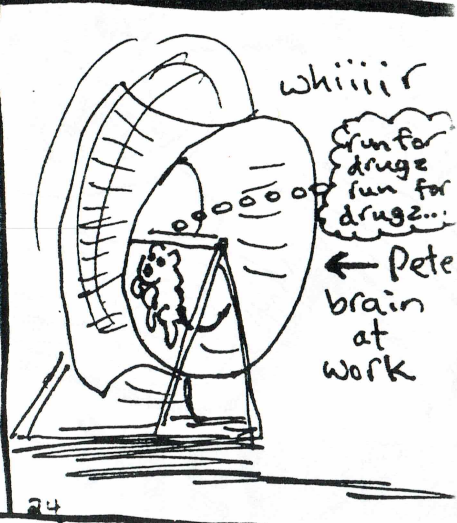 whiiiir
run for
drugz
run for
drugz...
Pete
brain
at
work
24